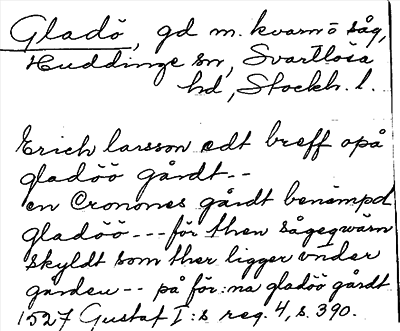 Gladö, gd m. kvarn o såg,
Huddinge sn, Svartlösa
hd, Stockh. l.
Erich larsson edt breff opå
gladöö gårdt--
en Cronones gårdt benempd
gladöö --- för then sågeqwärn
skyldt som ther ligger vnder
gården -- på för:na gladöö gårdt
1527 Gustaf I:s reg. 4, s. 390.